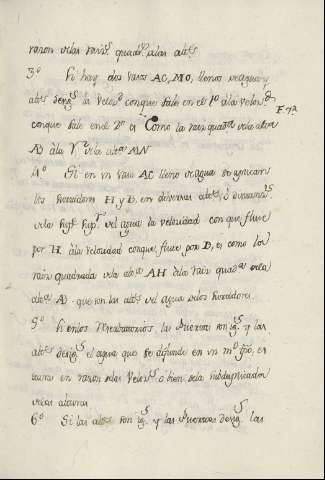 razon de las raiz.s quad.s de las alt.s
3º Si hay dos vasos AC, MO, llenos de agua y
alt.s desig.s la veloc.d con que sale en el 1º à la veloc.d
F. 7.ª
con que sale en el 2º es Como la raiz quad.a de la altu.a
AD à la V.r de la alt.a MN
4º Si en un vaso AC lleno de agua se aplican
los horadores H y D, en diversas alt.s ò distancias
de la sup.e sup.r del agua la velocidad con que fluye
por H à la velocidad con que fluye por D, es como la
raiz quadrada de la alt.a AH à la raiz quad.a de la
alt.a AD que son las alt.s del agua de los horadores.
5º Si en los reservatorios, las fuerzas son ig.s y las
alt.s desig.s el agua que se difunde en un m.º tpo, es
tara en razon de las veloc.s ò bien, de la subduplicada
de las alturas
6º Si las alt.s son ig.s y las fuerzas desig.s las